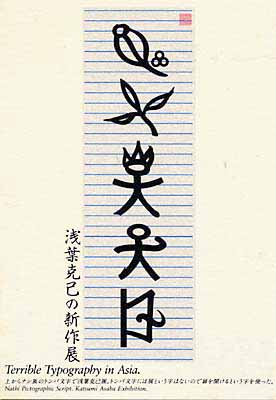 浅葉克己の新作展
Terrible Typography in Asia.
上からナシ族のトンパ文字で浅葉克己展。トンパ文字には展という字はないので鍵を開けるという字を使った。
Nashi Pictographic Script. Katsumi Asaba Exhibition.